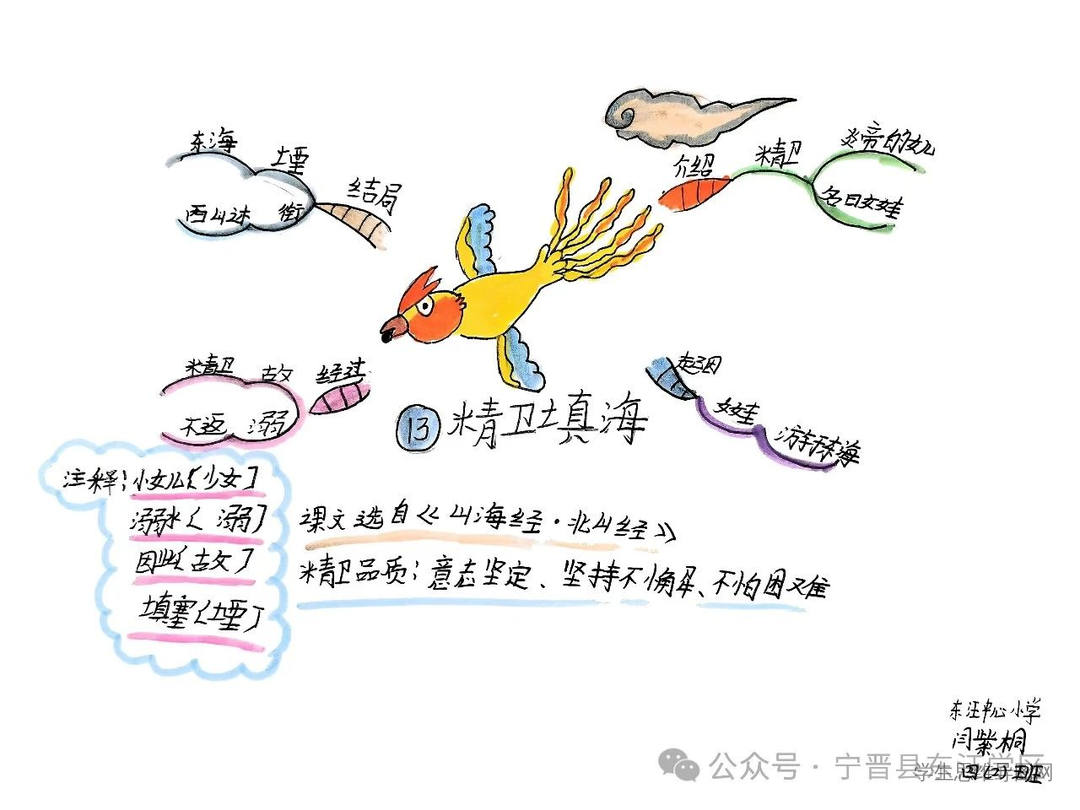 13 精卫填海
介绍
精卫
炎帝的女儿
名曰女娃
起因
女娃
游于东海
经过
精卫 故
不返 溺
结局
东海 堙
西山 衔
注释:小女儿(少女)
溺水(溺)
因此(故)
填塞(堙)
课文选自《山海经·北山经》
精卫品质:意志坚定、坚持不懈、不怕困难
东汪中心小学
闫紫桐
四(2)班
公众号·宁晋县东汪学区